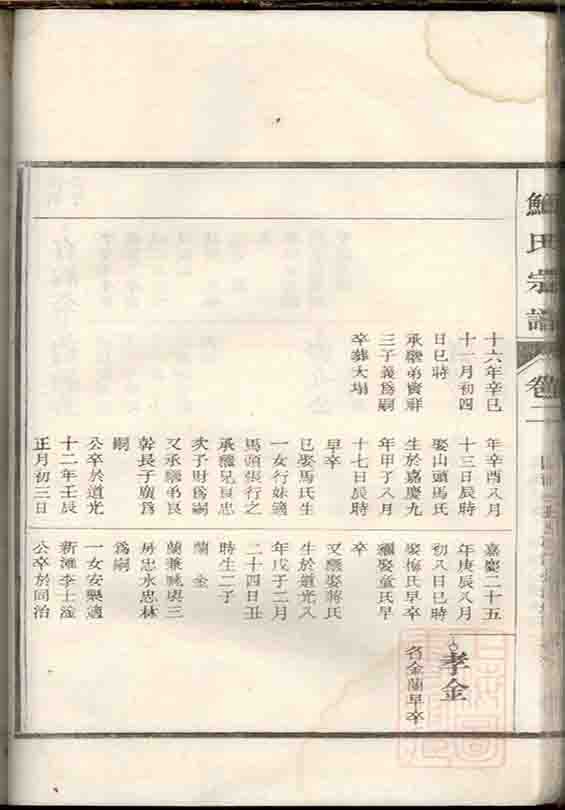 鮑氏宗譜
卷二
十六年辛巳
十一月初四
日巳時
承繼弟寶祥
三子義爲嗣
卒葬大塌
年辛酉八月
十三日辰時
娶山頭馬氏
生於嘉慶九
年甲子八月
十七日辰時
早卒
已娶馬氏生
一女行妹適
馬頭張行之
承繼兄良忠
次子財爲嗣
又承繼弟良
幹長子廣爲
嗣
公卒於道光
十二年壬辰
正月初三日
嘉慶二十五
年庚辰八月
初八日巳時
娶梅氏早卒
繼娶童氏早
卒
又繼娶蔣氏
生於道光八
年戊子二月
二十四日丑
時生二子
蘭 金
蘭兼祧房三
房忠永忠林
爲嗣
一女安樂適
新灘李士淦
公卒於同治
孝金
名金蘭早卒